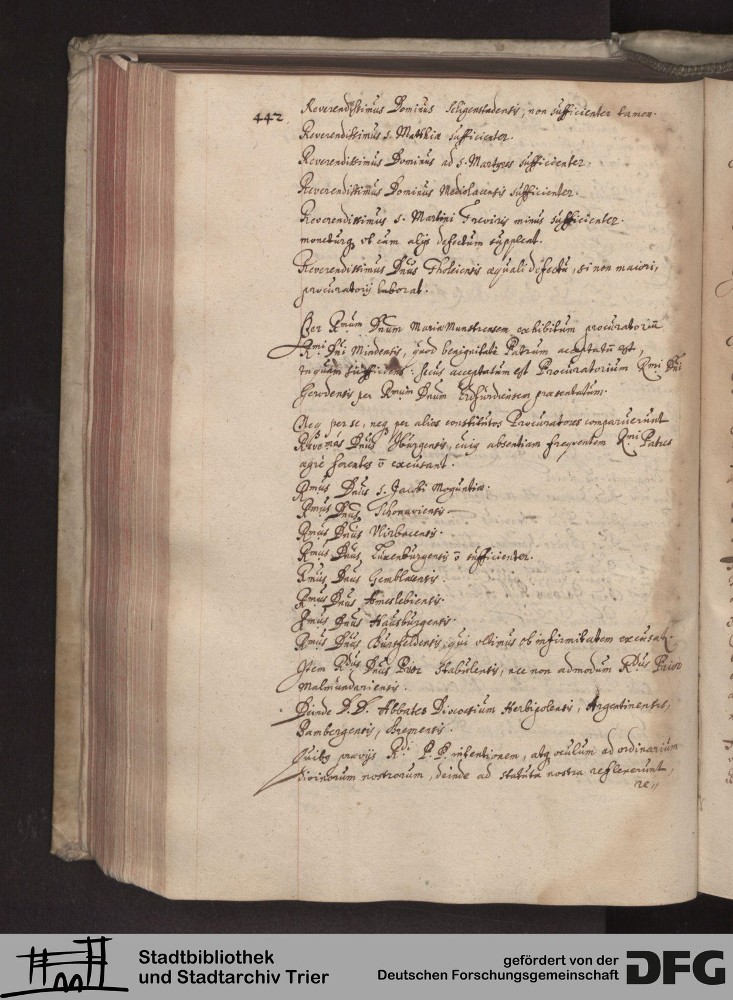 442.
Reverendissimus Dominus Seligenstadensis, non sufficienter tamen.
Reverendissimus S. Mathiæ sufficienter.
Reverendissimus Dominus ad S. Martyres sufficienter.
Reverendissimus Dominus Mediolacensis sufficienter.
Reverendissimus S. Martini Treviris minus sufficienter.
moneturq, ut cum alijs defectum suppleat.
Reverendissimus Dnus Tholeiensis æquali defectu, si non maiori,
procuratorij laborat.
Per Rmum Dnum Maria Munstrensem exhibitum procuratoriū
Rmi Dni Mindensis, quod benignitate Patrum acceptatū est,
tanquam sufficiens: secus acceptatum est Procuratorium Rmi Dni
Gerodensis per Rmum Dnum Erfurdiensem præsentatum.
Neq per se, neq per alios constitutos Procuratores comparuerunt
Dnus Iburgensis, cuig absentiam frequentem Rmi Patres
ægre ferentes ō excusant.
Rmus Dnus S. Jacobi Moguntiæ.
Rmus Dnus Schonaviensis
Rmus Dnus
Rmus Dnus Luxenburgensis ō sufficienter.
Rmus Dnus Gemblacensis.
Rmus Dnus Ameslebiensis.
Rmus Dnus Hausburgensis.
Rmus Dnus qui ultimus ob infirmitatem excusatr.
Item Rdus Dnus Prior Stabulensis, nec non admodum Rdus Prior
Malmundariensis.
Deinde D. D. Abbates Diocesium Herbipolensis, Argentinensis,
Bambergensis, Bremensis.
præviis Rdi P. P. intentionem, atq oculum ad ordinarium
divinorum nostrorum, deinde ad statuta nostra reflexerunt,
re,,
Stadtbibliothek
und Stadtarchiv Trier
gefördert von der
Deutschen Forschungsgemeinschaft
DFG